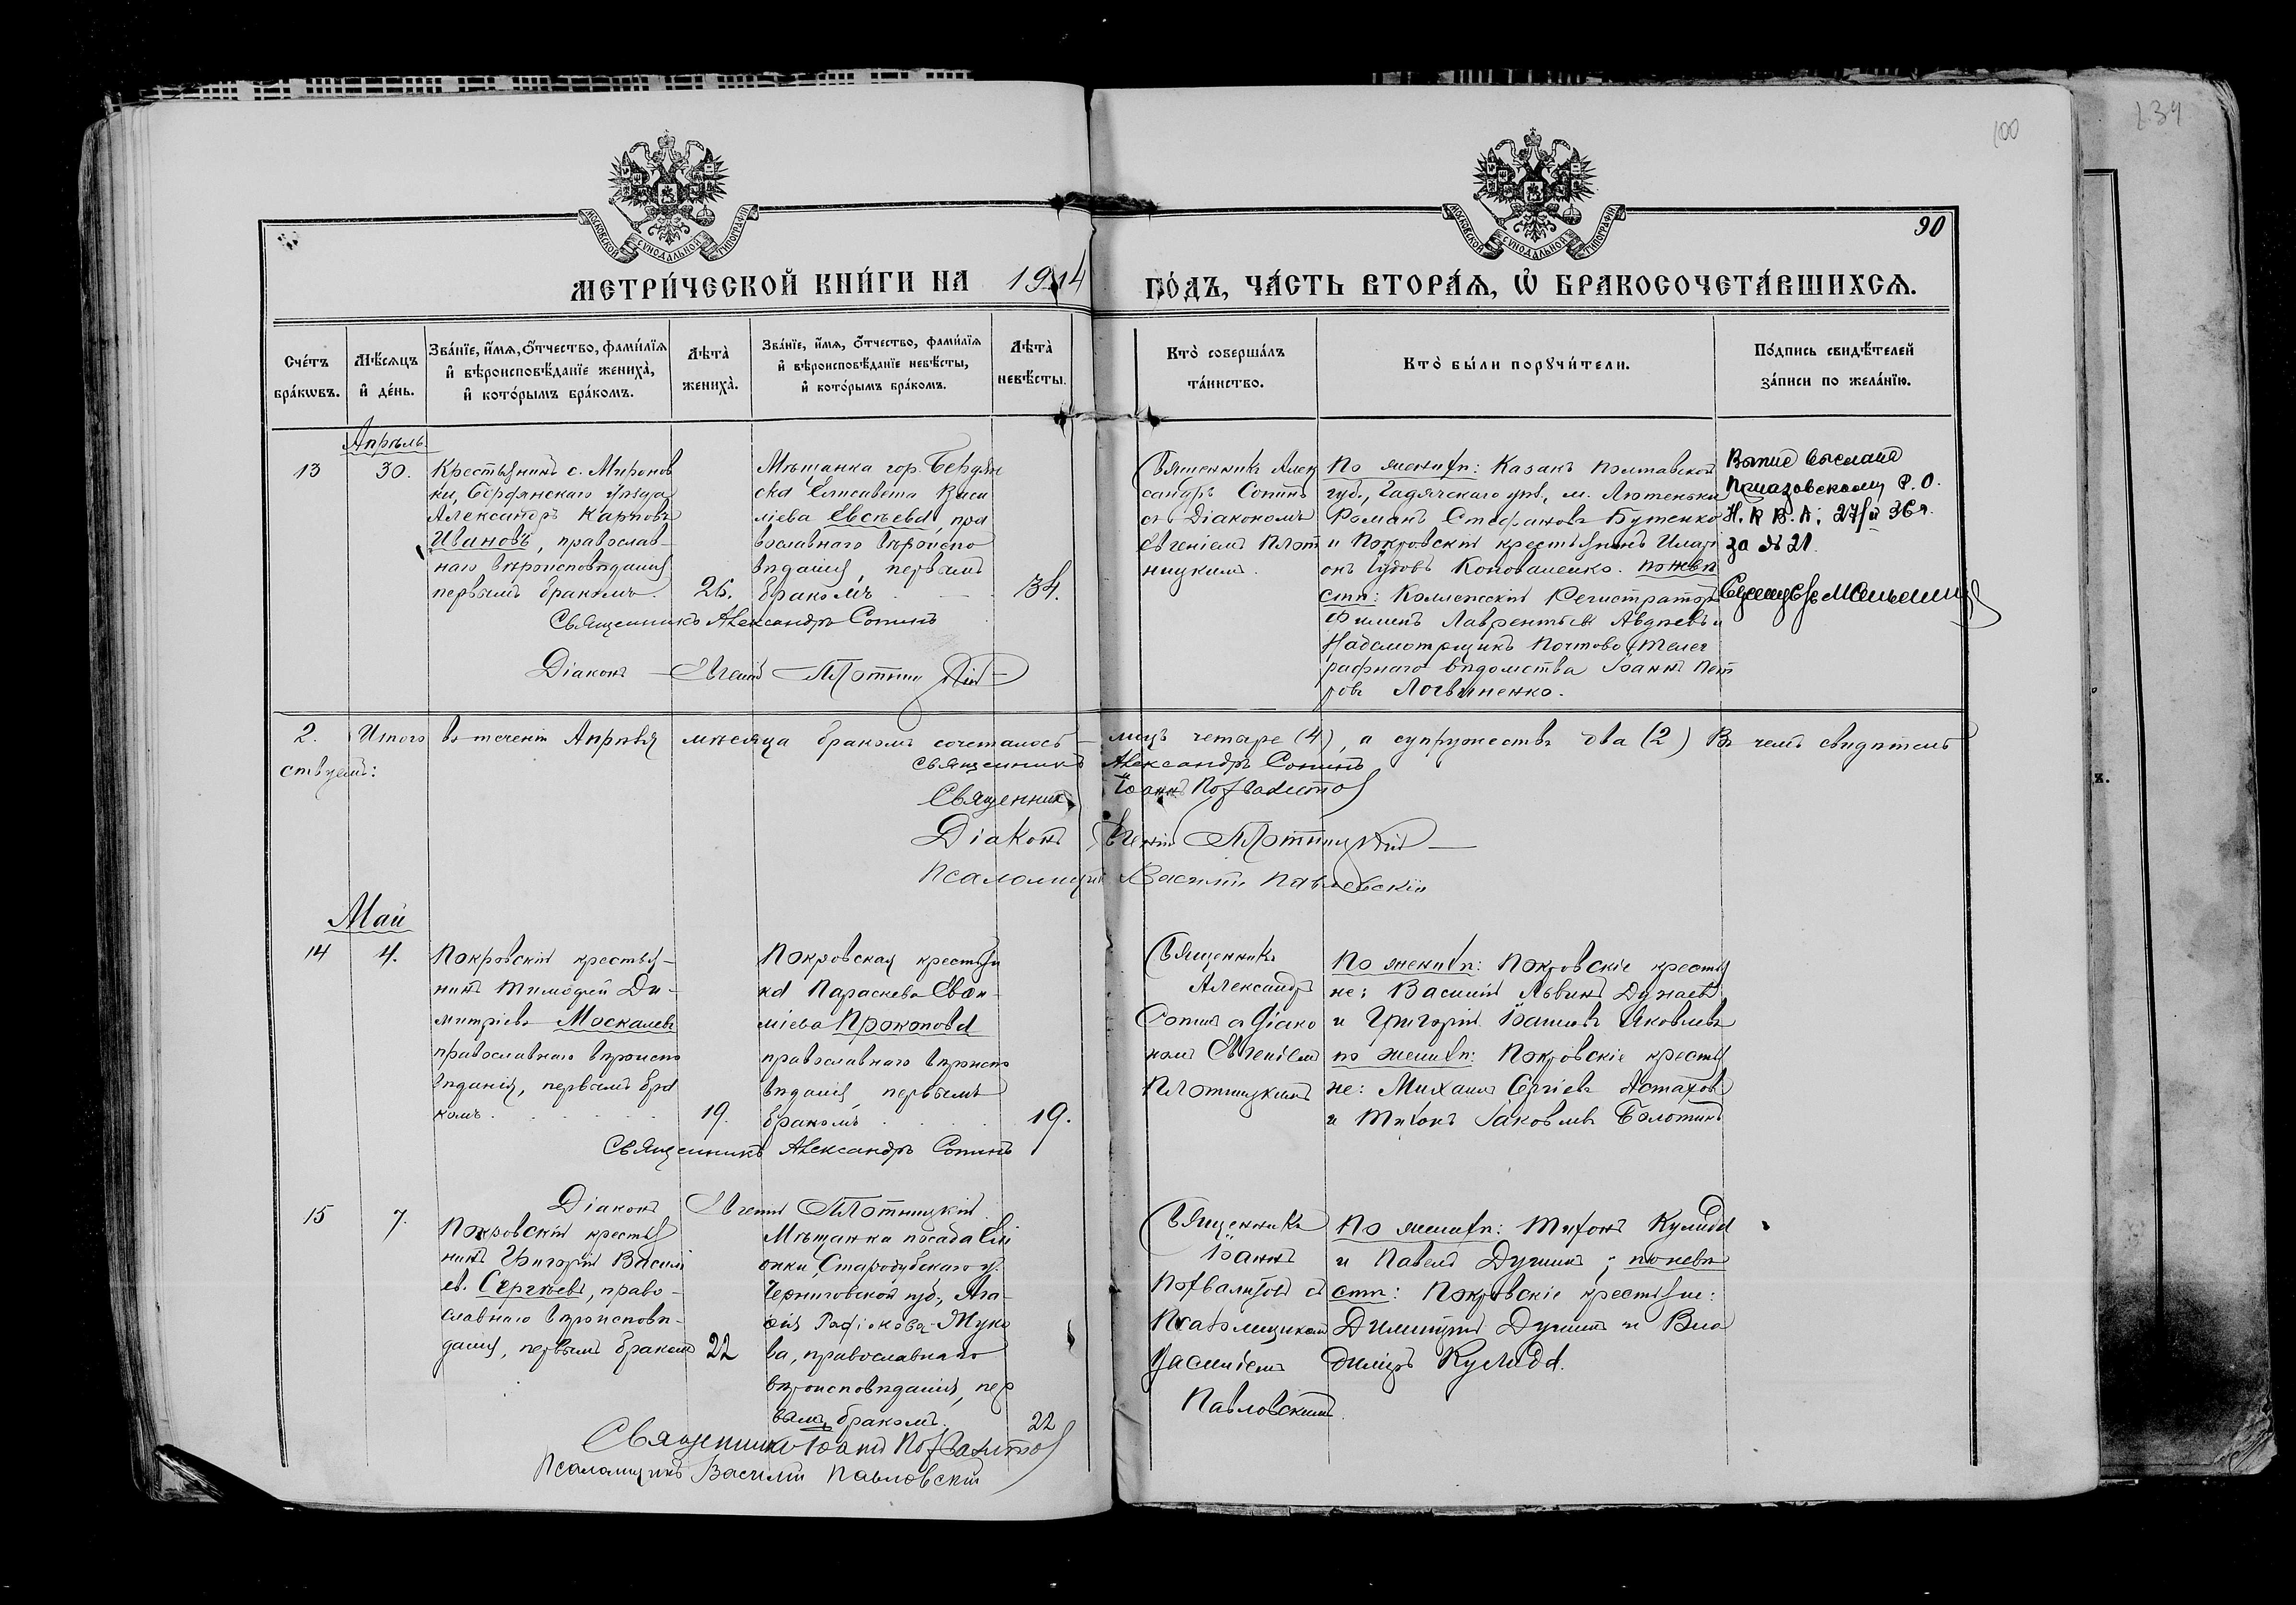 100
234
90
МОСКОВСКОЙ СУНОДАЛЬНОЙ ТИПОГРАФІИ
МОСКОВСКОЙ СУНОДАЛЬНОЙ ТИПОГРАФІИ
МЕТРИ́ЧЕСКОЙ КНИ́ГИ НА 1914 ГО́ДЪ, ЧА́СТЬ ВТОРА́Я, Ѡ БРАКОСОЧЕТА́ВШИХСЯ.
Сче́тъ бра́кѡвъ.
Мѣ́сяцъ и де́нь.
Зва́нїе, и́мя, о́тчество, фами́лїя
и вѣроисповѣ́данїе жениха̀,
и кото́рымъ бра́комъ.
Лѣта̀ жениха̀.
Зва́нїе, и́мя, о́тчество, фами́лїя
и вѣроисповѣ́данїе невѣ́сты,
и кото́рымъ бра́комъ.
Лѣта̀ невѣ́сты.
Кто̀ соверша́лъ
та́инство.
Кто̀ бы́ли порꙋчи́тели.
По́дпись свидѣ́телей
за́писи по жела́нїю.
Апрѣль
13
30.
Крестьянинъ с. Миронов
ки, Бердянскаго уѣзда
Александръ Карповъ
Ивановъ, православ-
наго вѣроисповѣданія
первымъ бракомъ.
26.
Мѣщанка гор. Бердян
ска Елисавета Васи
ліева Евсѣева, пра
вославнаго вѣроиспо
вѣданія, первымъ
бракомъ
34.
Священникъ Алек
сандръ Сопинъ
съ Діакономъ
Евгеніемъ Плот
ницкимъ.
По женихѣ: Казакъ Полтавской
губ., Гадячскаго уѣз., м. Лютеньки
Романъ Стефановъ Бутенко
и Покровскій крестьянинъ Илари
онъ Іудовъ Коноваленко. по невѣ
стѣ: Коллежскій Регистраторъ
Филипъ Лаврентьевъ Авдѣевъ и
Надсмотрщикъ Почтово телег
рафнаго вѣдомства Іоаннъ Пет
ровъ Логвиненко.
Выпис выслана
Приазовскому Р.О.
Н.К.В.Д. 27/II 36 г.
за № 21.
Священникъ Александръ Сопинъ
Діаконъ Евгеній Плотницкій
2. Итого въ теченіи Апрѣля мѣсяца бракомъ сочеталось лицъ четыре (4), а супружествъ два (2) Въ чемъ свидѣтель
ствуемъ:
Священникъ Александръ Сопинъ
Священникъ Іоаннъ Похвалитовъ
Діаконъ Евгеній Плотницкій
Псаломщикъ Василій Павловскій
Май
14
4.
Покровскій крестья-
нинъ Тимофей Ди-
митріевъ Москалевъ
православнаго вѣроиспо
вѣданія, первымъ бра
комъ.
19.
Покровская крестьян
ка Параскева Евфи-
міева Прокопова
православнаго вѣроиспо
вѣданія, первымъ
бракомъ
19.
Священникъ
Александръ
Сопинъ съ Діако
номъ Евгеніемъ
Плотницкимъ
По женихѣ: Покровскіе крестья
не: Василій Львинъ Дунаевъ
и Григорій Іоанновъ Яковлевъ
по женихѣ: Покровскіе крестья
не: Михаилъ Сергіевъ Астаховъ
и Тихонъ Іаковлевъ Болотинъ
Священникъ Александръ Сопинъ
Діаконъ Евгеній Плотницкій
15
7.
Покровскій крестья
нинъ Григорій Васил
ев. Сергѣевъ, право-
славнаго вѣроисповѣ-
данія, первымъ бракомъ
22
Мѣщанка посада Елі
онки, Стародубскаго у.
Черниговской губ., Ага-
фія
ва, православнаго
вѣроисповѣданія, пер
вымъ бракомъ.
22
Священникъ
Іоаннъ
Похвалитовъ съ
Псаломщикомъ
Василіемъ
Павловскимъ.
По женихѣ: Тихонъ Кулида
и Павелъ Душинъ; по невѣ
стѣ: Покровскіе крестьяне:
Димитрій Душинъ и Вла
димиръ Кулида.
Священникъ Іоаннъ Похвалитовъ
Псаломщикъ Василій Павловскій